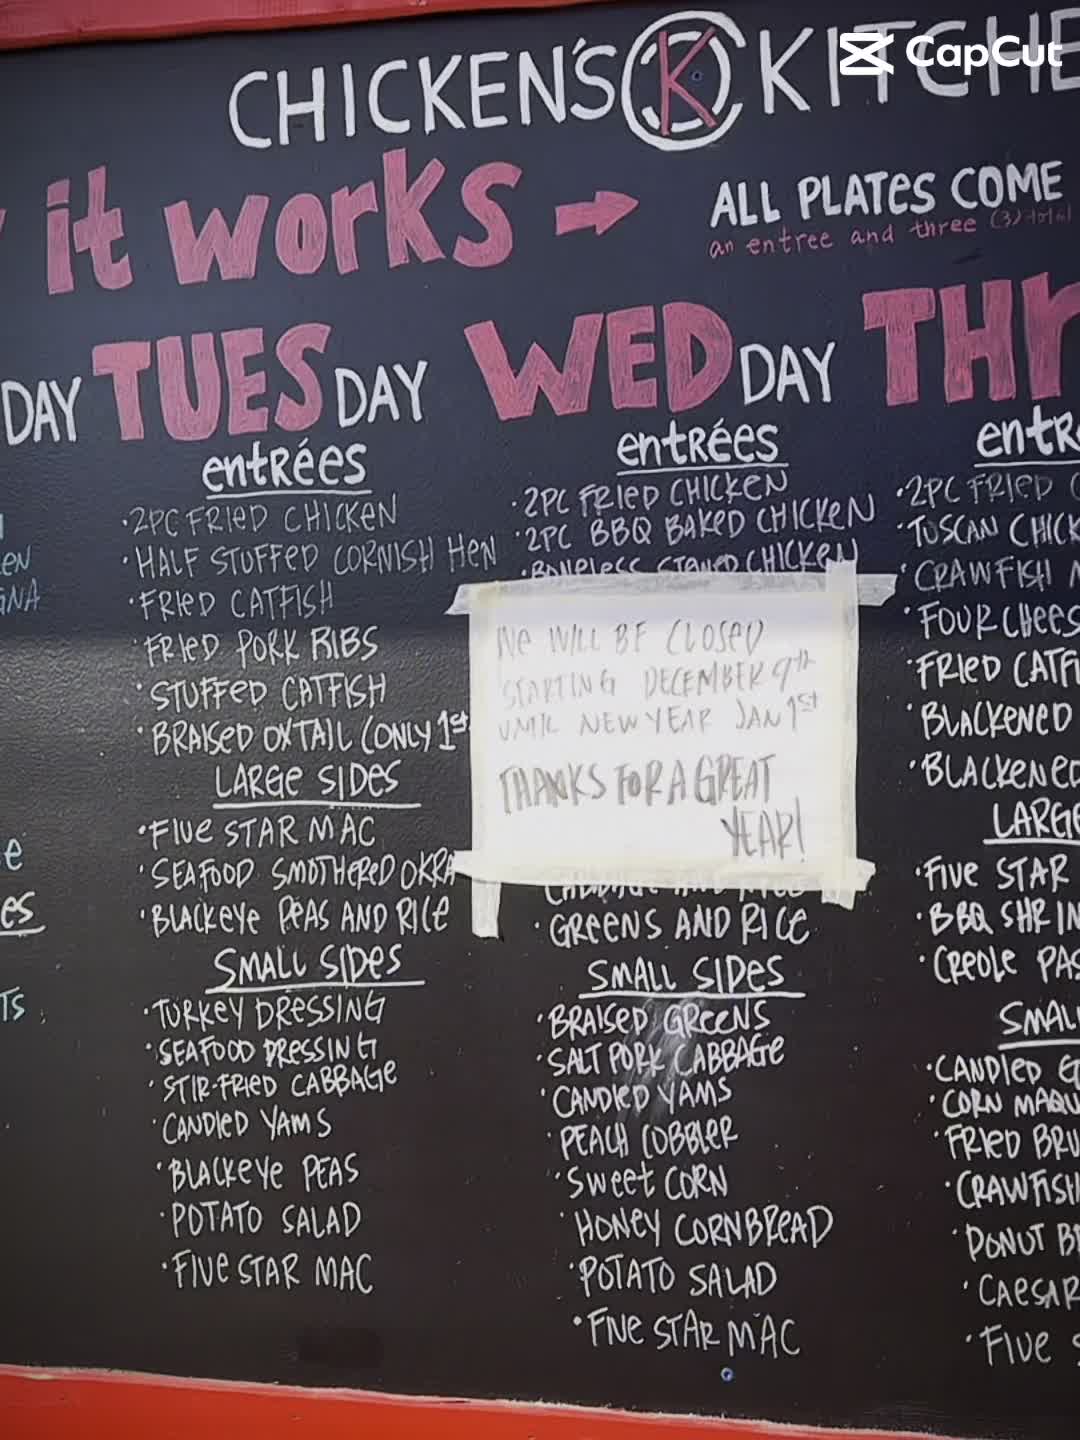 CapCut
CHICKEN'S K KITCHE
it works →
ALL PLATES COME
an entree and three (3) total
DAY TUESDAY WEDDAY THr
entrées
•2PC FRIED CHICKEN
•HALF STUFFED CORNISH HEN
•FRIED CATFISH
•FRIED PORK RIBS
•STUFFED CATFISH
•BRAISED OXTAIL (ONLY 1st
LARGE SIDES
•FIVE STAR MAC
•SEAFOOD SMOTHERED OKRA
•BLACKEYE PEAS AND RICE
SMALL SIDES
•TURKEY DRESSING
•SEAFOOD DRESSING
•STIR-FRIED CABBAGE
•CANDIED YAMS
•BLACKEYE PEAS
•POTATO SALAD
•FIVE STAR MAC
entrées
•2PC FRIED CHICKEN
•2PC BBQ BAKED CHICKEN
•BONELESS STEWED CHICKEN
WE WILL BE CLOSED
STARTING DECEMBER 9th
UNTIL NEW YEAR JAN 1st
THANKS FOR A GREAT
YEAR!
CABBAGE AND RICE
•GREENS AND RICE
SMALL SIDES
•BRAISED GREENS
•SALT PORK CABBAGE
•CANDIED YAMS
•PEACH COBBLER
•SWEET CORN
•HONEY CORNBREAD
•POTATO SALAD
•FIVE STAR MAC
entr
•2PC FRIED C
•TUSCAN CHICK
•CRAWFISH
•FOUR CHEES
•FRIED CATFI
•BLACKENED
•BLACKENED
LARGE
•FIVE STAR
•BBQ SHRIM
•CREOLE PAS
SMAL
•CANDIED
•CORN MAQU
•FRIED BRU
•CRAWFISH
•DONUT B
•CAESAR
•FIVE S